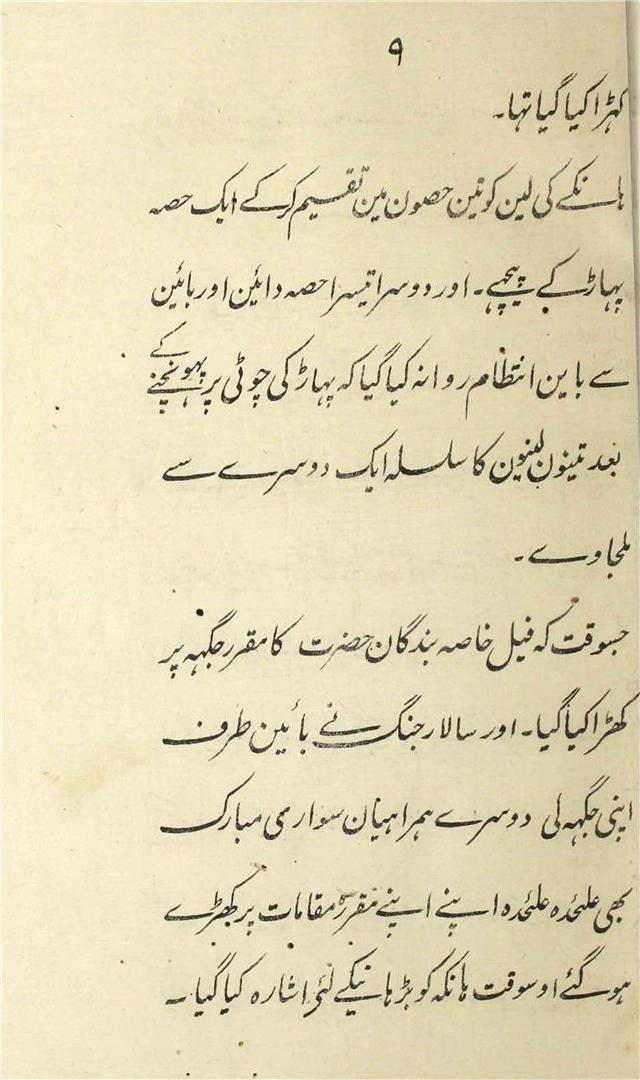 ۹
کہڑا کیا گیا تہا۔
ہانکے کی لین کو تین حصون مین تقسیم کرکے ایک حصہ
پہاڑ کے پیچہے۔ اور دوسرا تیسرا حصہ دائین اور بائین
سے باین انتظام روانہ کیا گیا کہ پہاڑ کی چوٹی پر پہونچنے کے
بعد تینون لینون کا سلسلہ ایک دوسرے سے
ملجاوے۔
جسوقت کہ فیل خاصہ بندگان حضرت کا مقرر جگہہ پر
کھڑا کیا گیا۔ اور سالار جنگ نے بائین طرف
اپنی جگہہ لی دوسرے ہمراہیان سواری مبارک
بھی علٰحدہ علٰحدہ اپنے اپنے مقررہ مقامات پر کھڑے
ہوگئے اوسوقت ہانکہ کو بڑہانیکے لئے اشارہ کیا گیا۔